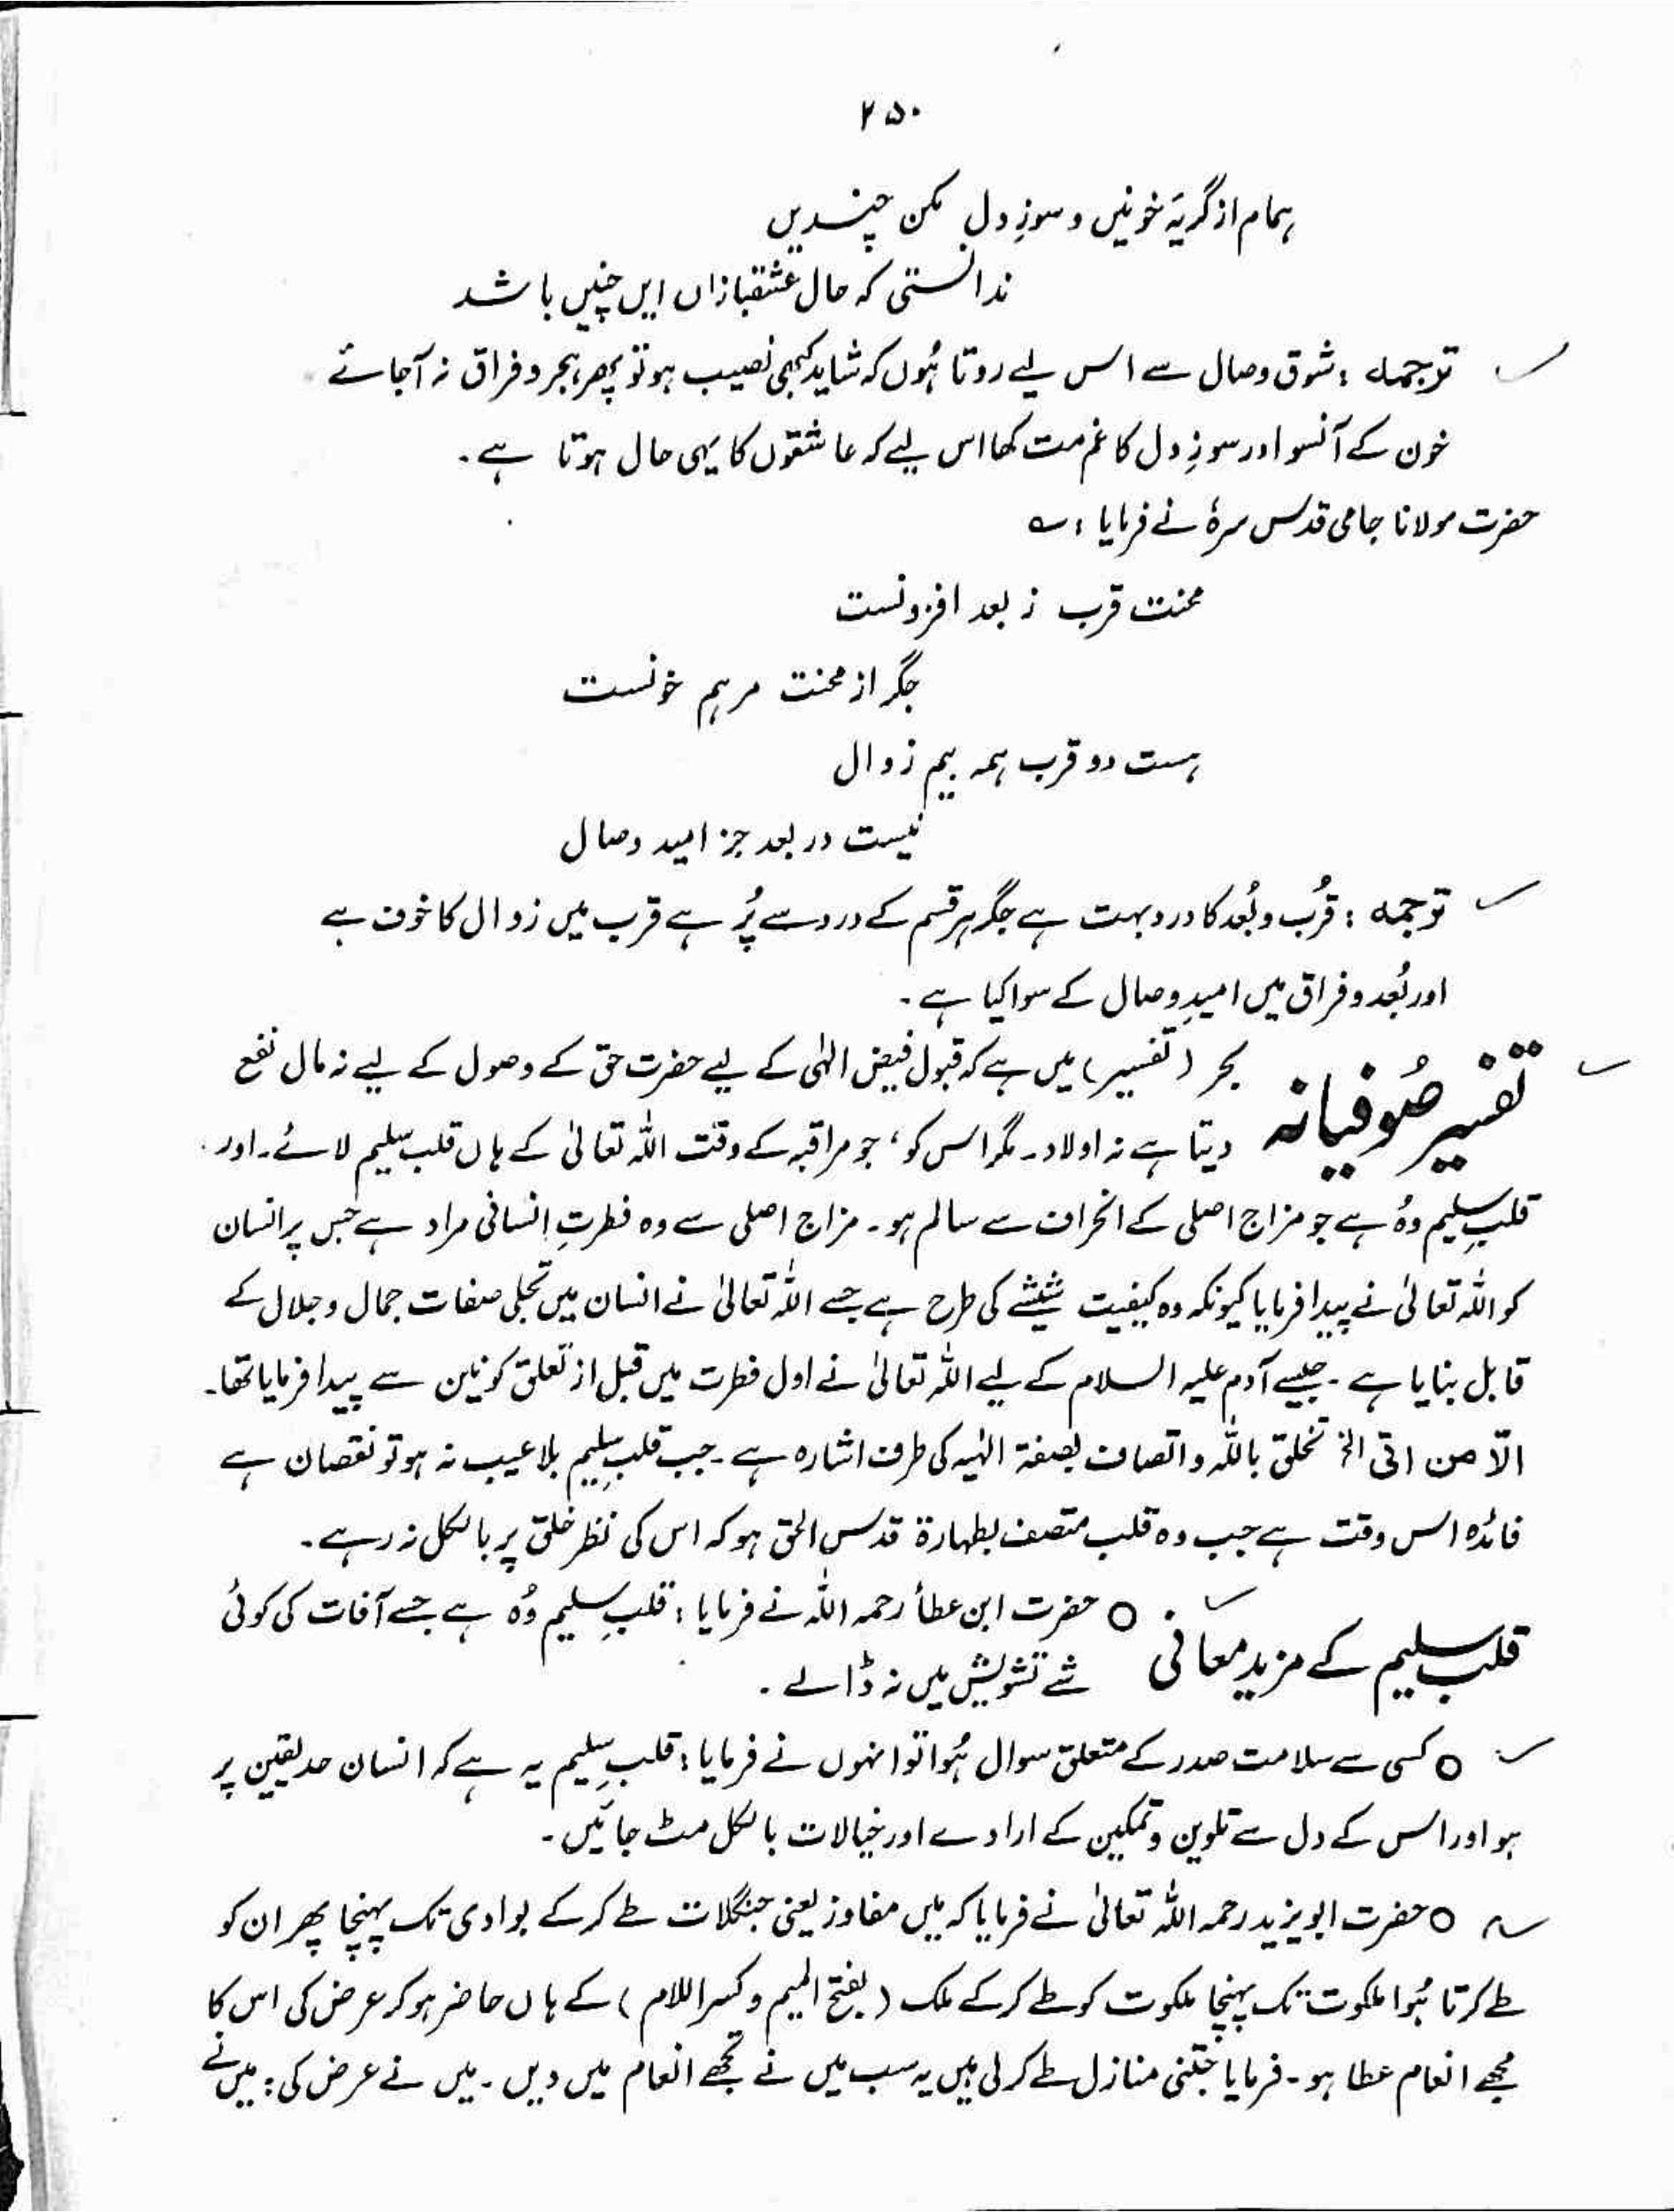 ۲۵۰
ہمام از گریۂ خونیں و سوزِ دل مکن چندیں
ندانستی کہ حال عشقبازاں ایں چنیں باشد
ترجمہ : شوق وصال سے اس لیے روتا ہُوں کہ شاید کبھی نصیب ہو تو پھر ہجر و فراق نہ آجائے
خون کے آنسو اور سوزِ دل کا غم مت کھا اس لیے کہ عاشقوں کا یہی حال ہوتا ہے ۔
حضرت مولانا جامی قدس سرہٗ نے فرمایا : ؎
محنت قرب ز بعد افزونست
جگر از محنت مرہم خونست
ہست دو قرب ہمہ بیم زوال
نیست در بعد جز امید وصال
ترجمہ : قُرب و بُعد کا درد بہت ہے جگر ہر قسم کے درد سے پُر ہے قرب میں زوال کا خوف ہے
اور بُعد و فراق میں امیدِ وصال کے سوا کیا ہے ۔
تفسیر صُوفیانہ بحر ( تفسیر ) میں ہے کہ قبول فیض الٰہی کے لیے حضرت حق کے وصول کے لیے نہ مال نفع
دیتا ہے نہ اولاد ۔ مگر اس کو ، جو مراقبہ کے وقت اللہ تعالیٰ کے ہاں قلب سلیم لائے ۔ اور
قلبِ سلیم وُہ ہے جو مزاج اصلی کے انحراف سے سالم ہو ۔ مزاج اصلی سے وہ فطرتِ انسانی مراد ہے جس پر انسان
کو اللہ تعالیٰ نے پیدا فرمایا کیونکہ وہ کیفیت شیشے کی طرح ہے جسے اللہ تعالیٰ نے انسان میں تجلی صفات جمال و جلال کے
قابل بنایا ہے ۔ جیسے آدم علیہ السلام کے لیے اللہ تعالیٰ نے اول فطرت میں قبل از تعلق کونین سے پیدا فرمایا تھا ۔
الّا من اتی الخ تخلق باللہ و اتصاف بصفۃ الٰہیہ کی طرف اشارہ ہے ۔ جب قلبِ سلیم بلا عیب نہ ہو تو نقصان ہے
فائدہ اس وقت ہے جب وہ قلب متصف بطہارۃ قدس الحق ہو کہ اس کی نظر خلق پر بالکل نہ رہے ۔
قلب سلیم کے مزید معانی ○ حضرت ابن عطأ رحمہ اللہ نے فرمایا : قلبِ سلیم وُہ ہے جسے آفات کی کوئی
شے تشویش میں نہ ڈالے ۔
○ کسی سے سلامت صدر کے متعلق سوال ہُوا تو انہوں نے فرمایا : قلبِ سلیم یہ ہے کہ انسان حد یقین پر
ہو اور اس کے دل سے تلوین و تمکین کے ارادے اور خیالات بالکل مٹ جائیں ۔
○ حضرت ابویزید رحمہ اللہ تعالیٰ نے فرمایا کہ میں مفاوز یعنی جنگلات طے کر کے بوادی تک پہنچا پھر ان کو
طے کرتا ہُوا ملکوت تک پہنچا ملکوت کو طے کر کے ملک ( بفتح المیم و کسر اللام ) کے ہاں حاضر ہو کر عرض کی اس کا
مجھے انعام عطا ہو ۔ فرمایا جتنی منازل طے کر لی ہیں یہ سب میں نے تجھے انعام میں دیں ۔ میں نے عرض کی : میں نے